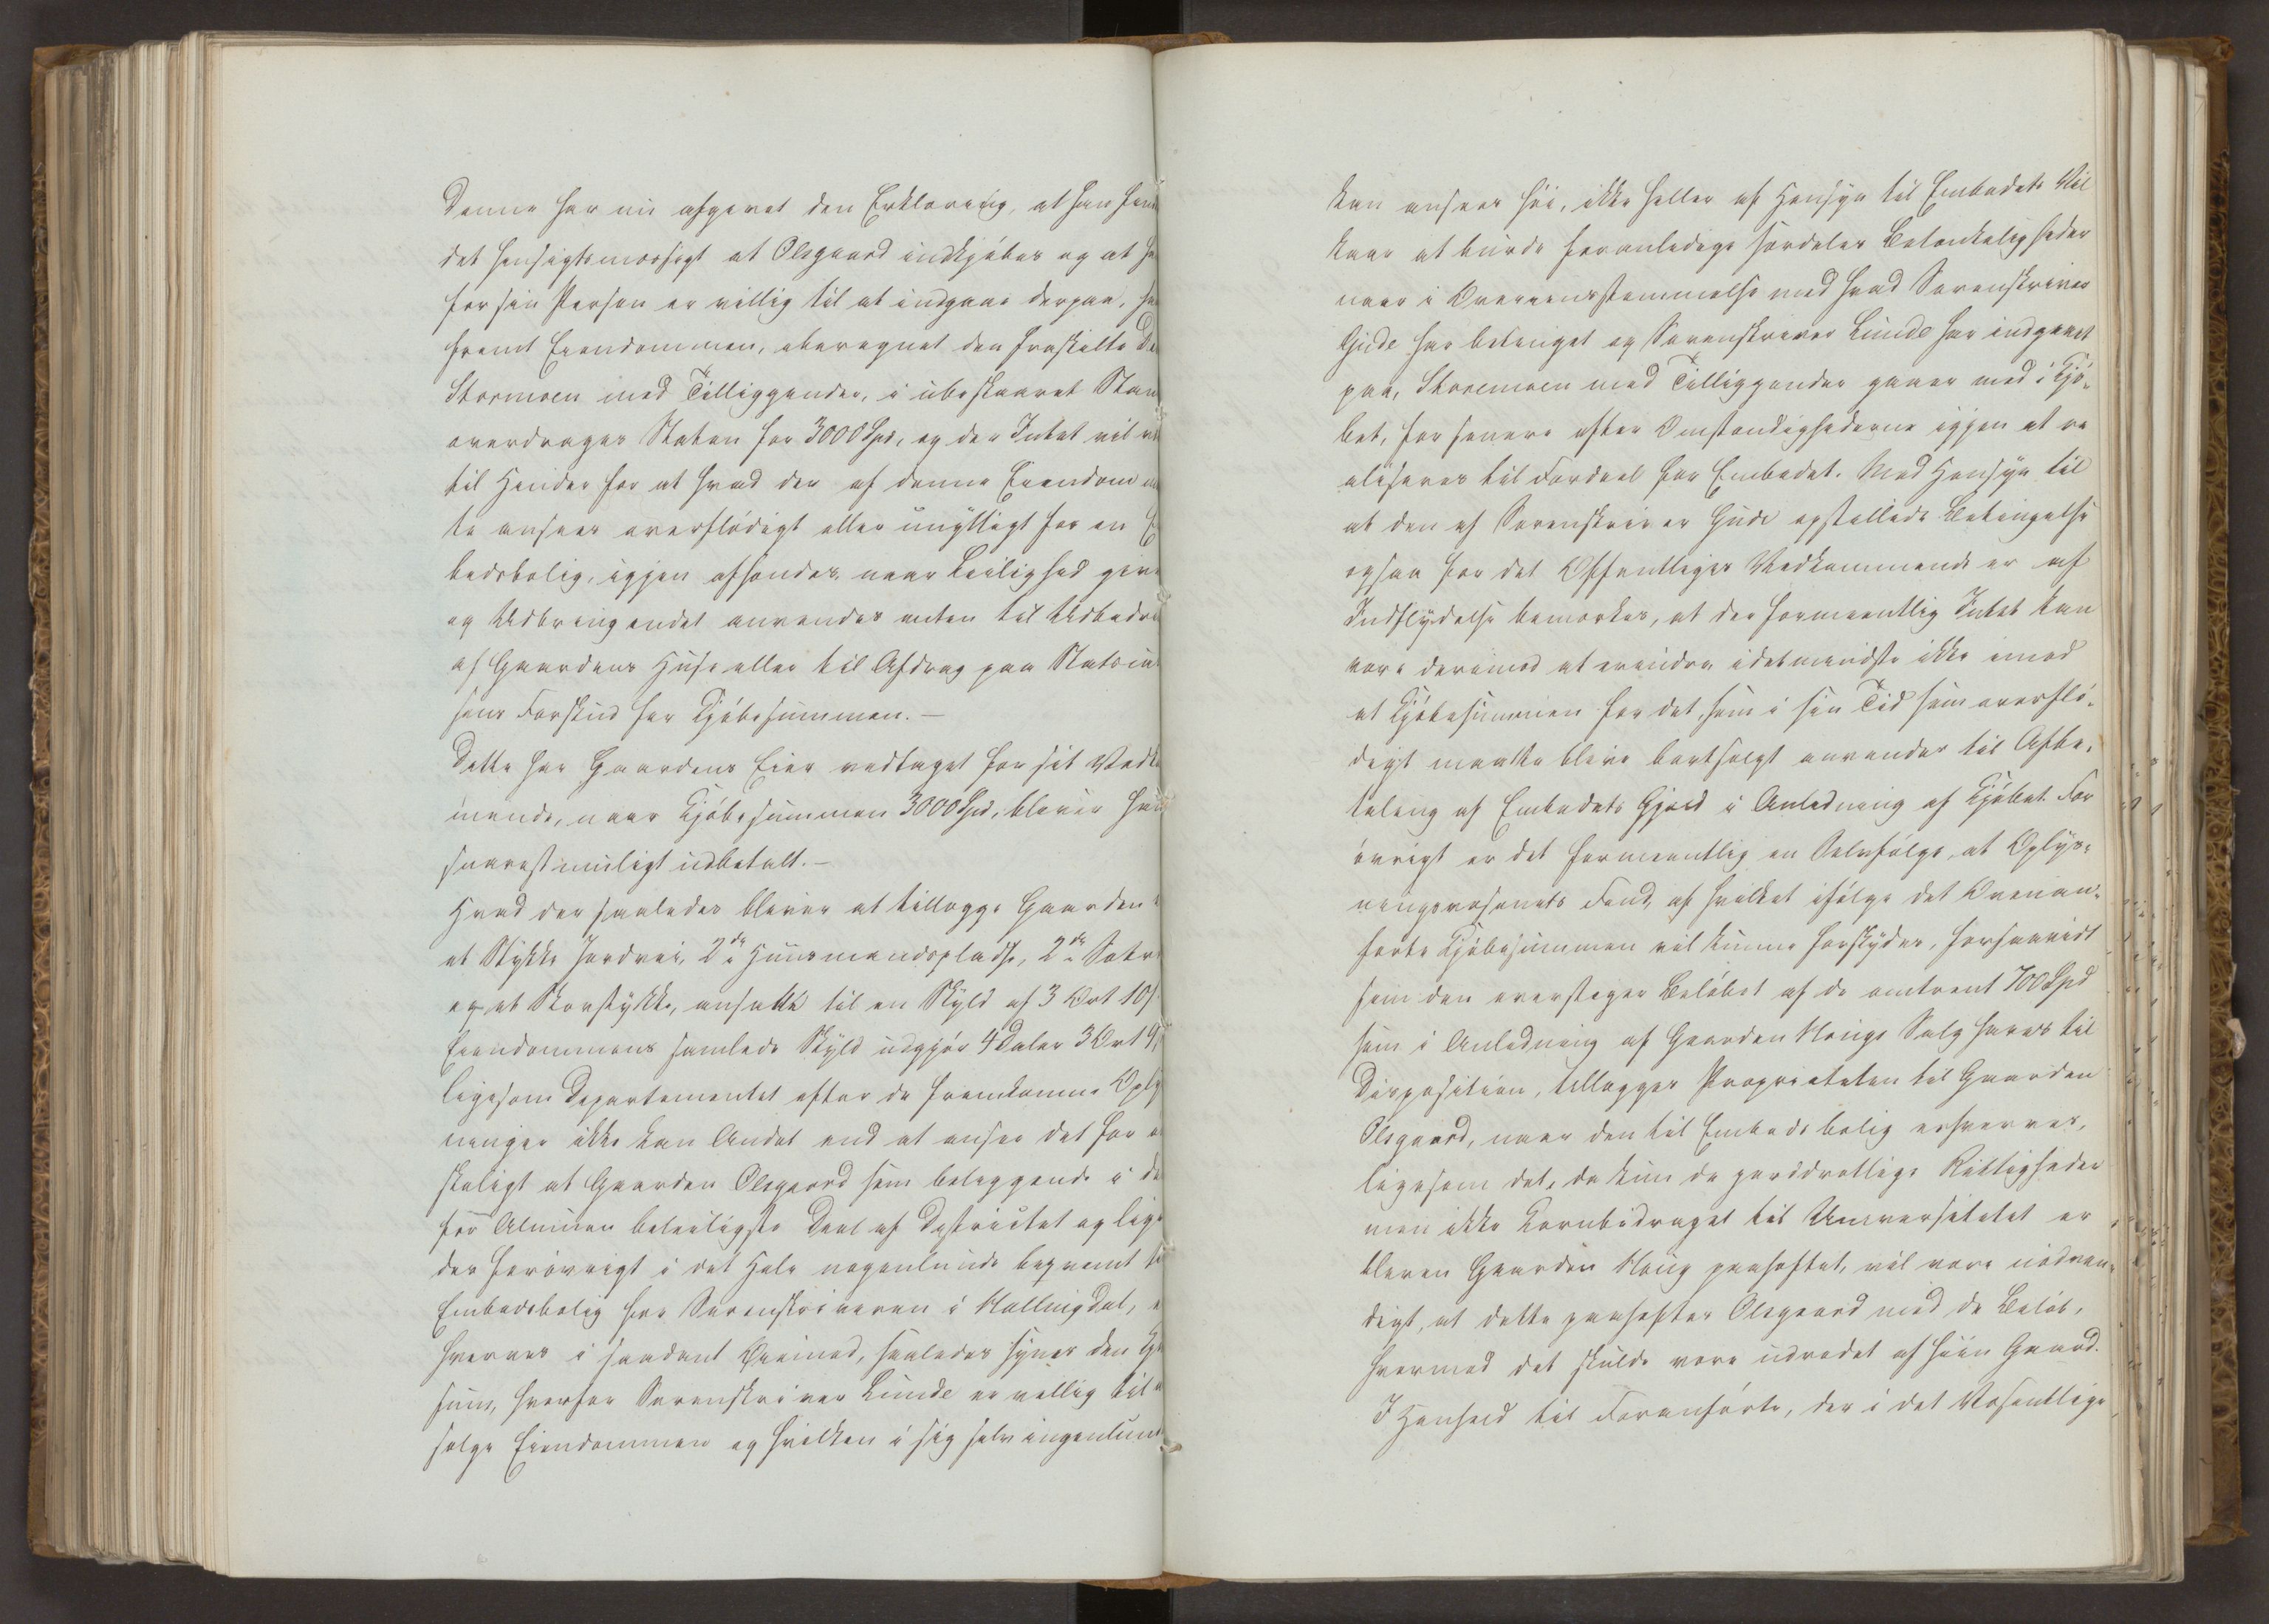 Denne har nu afgivet den Erklæring, at han fin
det hensigtsmæssigt at Olsgaard indkjøbes og at ha
for sin Person er villig til at indgaae derpaa,
fremt Eiendommen, uberegnet den fraskilte De
Stormoen med Tilliggender, i ubeskaaret Stan
overdrages Staten for 3000 Spd, og der Intet vil
til Hinder for at hvad der af denne Eiendom
te ansees overflødigt eller unyttigt for en E
bedsbolig, igjen afhændes, naar Leilighed give
og Udbringendet anvendes enten til Udbedre
af Gaardens Huse eller til Afdrag paa Statsca
sens Forskud for Kjøbesummen. —
Dette har Gaardens Eier vedtaget for sit Vedk
mende, naar Kjøbesummen 3000 Spd, bliver ham
snarest muligt udbetalt. —
Hvad der saaledes bliver at tillægge Gaarden
et Stykke Jordvei, 2de Huusmandspladse, 2de Sætre
og et Skovstykke, ansatte til en Skyld af 3 Ort 10
Eiendommens samlede Skyld udgjør 4 Daler 3 Ort 9
ligesom Departementet efter de fremkomne Oply
ninger ikke kan Andet end at ansee det for
skeligt at Gaarden Olsgaard som beliggende i de
for Almuen beleiligste Deel af Districtet og lige
der forøvrigt i det Hele nogenlunde beqvemt
Embedsbolig for Sorenskriveren i Hallingdal,
hverves i saadant Øiemed, saaledes synes den Kj
sum, hvorfor Sorenskriver Lunde er villig til
sælge Eiendommen og hvilken i sig selv ingenlund
kan ansees høi, ikke heller af Hensyn til Embedets Vil
kaar at burde foranledige særdeles Betænkeligheder
naar i Overeensstemmelse med hvad Sorenskriver
Gude har betinget og Sorenskriver Lunde har indgaaet
paa, Storemoen med Tilliggender gaaer med i Kjø-
bet, for senere efter Omstændighederne igjen at re
aliseres til Fordeel for Embedet. Med Hensyn til
at den af Sorenskriver Gude opstillede Betingelse
ogsaa for det Offentliges Vedkommende er af
Indflydelse bemærkes, at der formeentlig Intet kan
være derimod at erindre, idetmindste ikke imod
at Kjøbesummen for det, som i sin Tid som overflø-
digt maatte blive bortsolgt anvendes til Afbe-
taling af Embedets Gjæld i Anledning af Kjøbet. For
øvrigt er det formeentlig en Selvfølge, at Oplys-
ningsvæsenets Fond, af hvilket ifølge det Ovenan-
førte Kjøbesummen vil kunne forskydes, forsaavidt
som den overstiger Beløbet af de omtrent 700 Spd
som i Anledning af Gaarden Haugs Salg haves til
Disposition, tillægges Proprieteten til Gaarden
Olsgaard, naar den til Embedsbolig erhverves,
ligesom det, da kun de jorddrotlige Rettigheder
men ikke Kornbidraget til Universitetet er
bleven Gaarden Haug paaheftet, vil være nødven-
digt, at dette paaheftes Olsgaard med de Beløb,
hvormed det skulde være udredet af hiin Gaard.
I Henhold til Foranførte, der i det Væsentlige